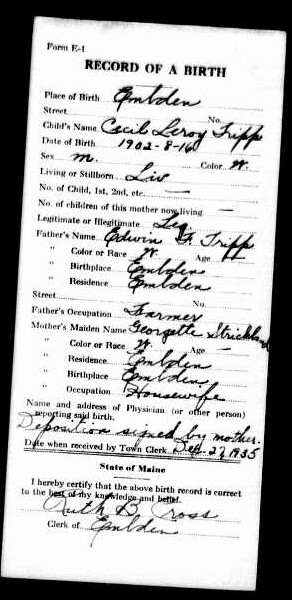 Form E-1
RECORD OF A BIRTH
Place of Birth Embden
Street No.
Child's Name Cecil Leroy Tripp
Date of Birth 1902-8-16
Sex M. Color W.
Living or Stillborn Liv
No. of Child, 1st, 2nd, etc. —
No. of children of this mother now living —
Legitimate or Illegitimate Leg
Father's Name Edwin F. Tripp
" Color or Race W. Age —
" Birthplace Embden
" Residence Embden
Street No.
Father's Occupation Farmer
Mother's Maiden Name Georgette Strickland
" Color or Race W. Age —
" Residence Embden
" Birthplace Embden
" Occupation Housewife
Name and address of Physician (or other person)
reporting said birth.
Deposition signed by mother.
Date when received by Town Clerk Dec. 27, 1935
State of Maine
I hereby certify that the above birth record is correct
to the best of my knowledge and belief.
Ruth B. Cross
Clerk of Embden